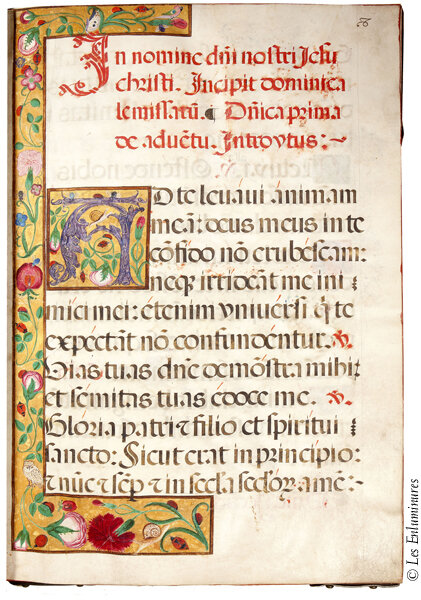 In nomine dñi nostri Jesu
christi. Incipit dominica
le missarũ. Dñica prima
de aduẽtu. Introytus:~
AD te leuaui animam
meã: deus meus in te
cõfido nõ erubescam:
neq irrideant me ini
mici mei: etenim vniuersi q̃ te
expectãt nõ confundentur. ℣.
Uias tuas dñe demõstra mihi:
et semitas tuas edoce me. ℣.
Gloria patri ⁊ filio et spiritui
sancto: Sicut erat in principio:
⁊ nũc ⁊ sẽp ⁊ in secla seclor̃ amẽ:~
© Les Enluminures